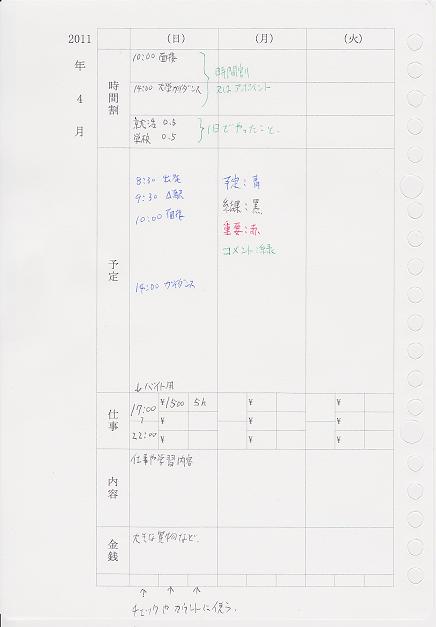 2011
年
4
月
(日) (月) (火)
時間割
10:00 面接
14:00 大学ガイダンス
時間割
又はアポイント
就活 0.5
学校 0.5
1日でやったこと。
予定
8:30 出発
9:30 △駅
10:00 面接
14:00 ガイダンス
予定:青
結果:黒
重要:赤
コメント:緑
↓バイト用
仕事
17:00 ¥1500 5h ¥ ¥
~ ¥ ¥ ¥
22:00 ¥ ¥ ¥
内容
仕事や学習内容
金銭
大きな買物など.
↑ ↑ ↑
チェックやカウントに使う.